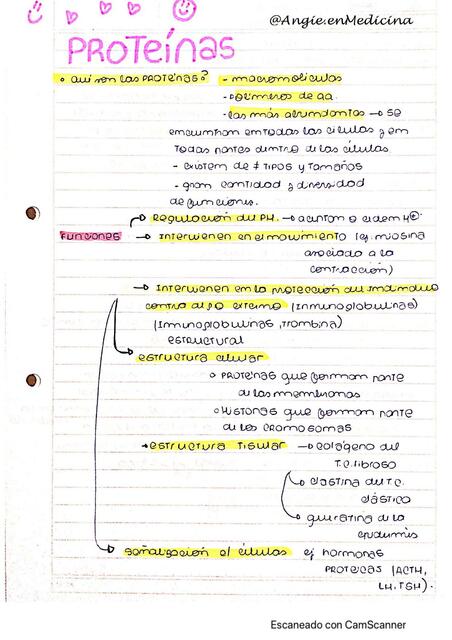 @Angie.enMedicina
PROTEÍNAS
• QUÉ SON LAS PROTEÍNAS? - macromoléculas
- Polímeros de aa.
- Las más abundantes → se
encuentran en todas las células y en
todas partes dentro de las células.
- existem de ≠ TIPOS y Tamaños
- gran cantidad y diversidad
de funciones.
→ Regulación del PH. → aceptan o ceden H⊕.
FUNCIONES → Intervienen en el movimiento (ej. miosina
asociado a la
contracción)
→ Intervienen en la protección del individuo
contra el externo (Inmunoglobulinas)
(Inmunoglobulinas, Trombina)
estructural
estructura celular
• PROTEÍNAS que forman parte
de las membranas
• HISTONAS que forman parte
de los cromosomas
• estructura Tisular → colágeno del
T.C. fibroso
→ elastina del T.C.
elástico
→ queratina de la
epidermis
→ señalización e/ células ej hormonas
PROTEICAS (ACTH,
LH, TSH).
Escaneado con CamScanner